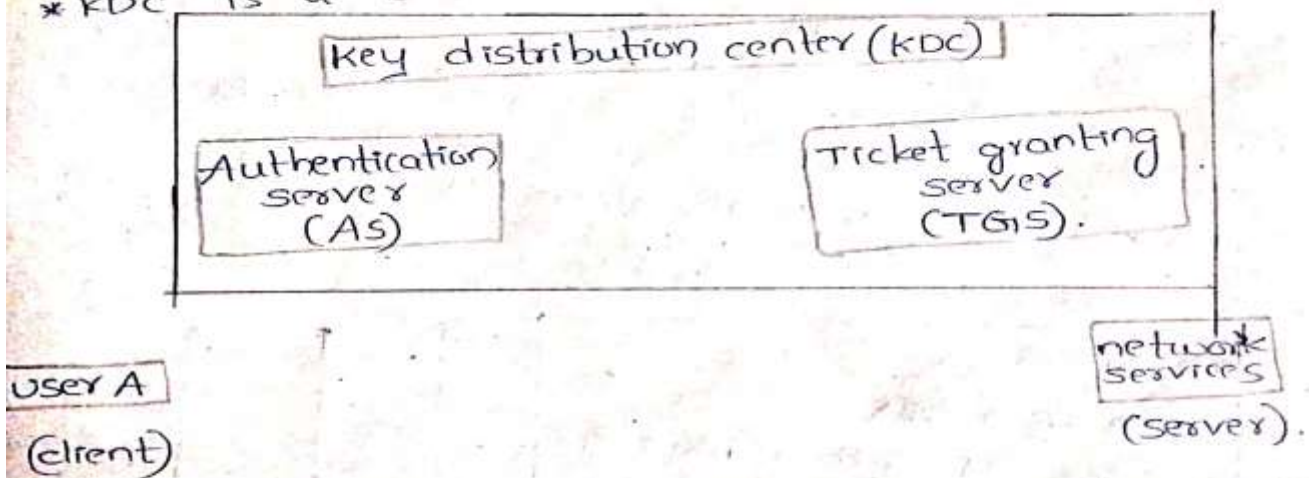 * KDC is a
Key distribution center (KDC)
Authentication
server
(AS)
Ticket granting
server
(TGS).
User A
(client)
network
services
(server).